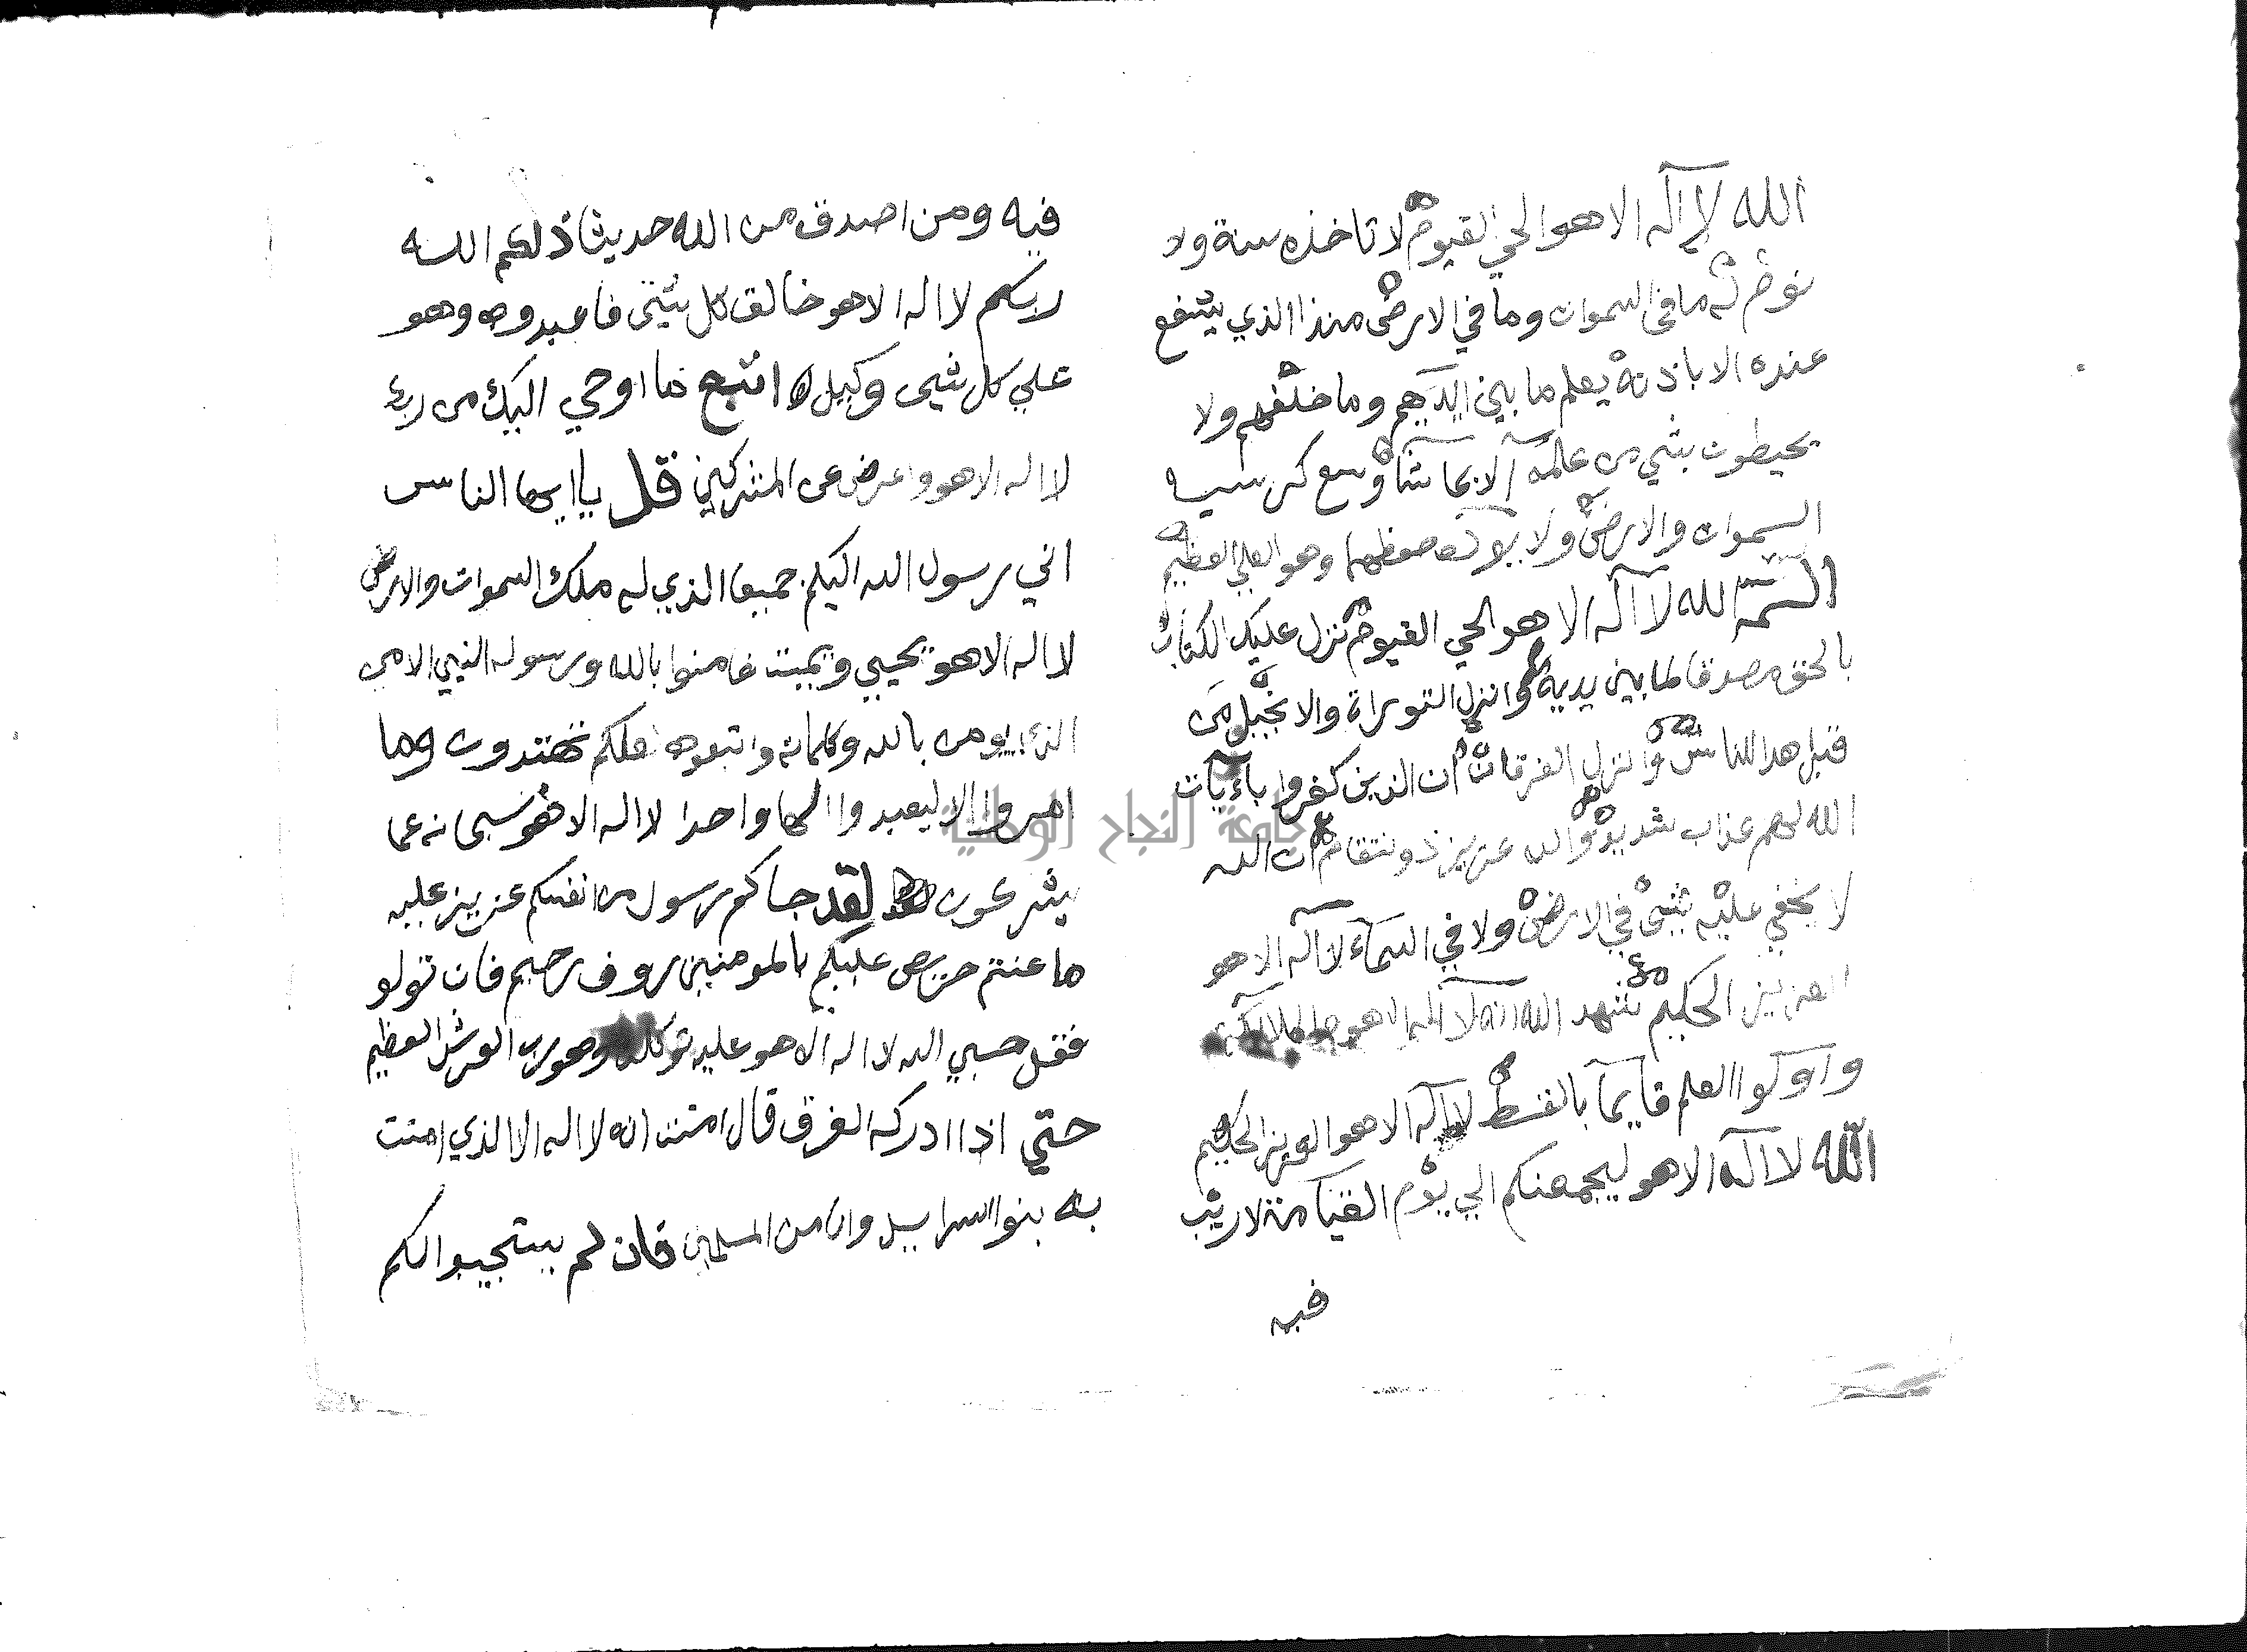 الله لا اله الا هو الحي القيوم لا تاخذه سنة ولا
نوم له ما في السموات وما في الارض منذا الذي يشفع
عنده الا باذنه يعلم ما بين ايديهم وما خلفهم ولا
يحيطون بشي من علمه الا بما شا وسع كرسيه
السموات والارض ولا يوده حفظهما وهو العلي العظيم
الله لا اله الا هو الحي القيوم نزل عليك الكتاب
بالحق مصدقا لما بين يديه وانزل التوراة والانجيل من
قبل هدا للناس وانزل الفرقان ان الذين كفروا بايات
الله لهم عذاب شديد والله عزيز ذو نتقام ان الله
لا يخفي عليه شيى في الارض ولا في السماء لا اله الا هو
العزيز الحكيم شهد الله انه لا اله الا هو والملايكة
واولوا العلم قايما بالقسط لا اله الا هو العزيز الحكيم
الله لا اله الا هو ليجمعنكم الي يوم القيامة لا ريب
فيه
فيه ومن اصدق من الله حديثا ذلكم الله
ربكم لا اله الا هو خالق كل شيى فاعبدوه وهو
علي كل شيى وكيل اتبع ما اوحي اليك من ربك
لا اله الا هو واعرض عن المشركين قل يا ايها الناس
اني رسول الله اليكم جميعا الذي له ملك السموات والارض
لا اله الا هو يحيي ويميت فامنوا بالله ورسوله النبي الامي
الذي يومن بالله وكلماته واتبعوه لعلكم تهتدون وما
امروا الا ليعبدوا الها واحدا لا اله الا هو سبحانه عما
يشركون لقد جاكم رسول من انفسكم عزيز عليه
ما عنتم حريص عليكم بالمومنين روف رحيم فان تولو
فقل حسبي الله لا اله الا هو عليه توكلت وهو رب العرش العظيم
حتي اذا ادركه الغرق قال امنت انه لا اله الا الذي امنت
به بنوا اسراييل وانا من المسلمين فان لم يستجيبوا لكم
جامعة النجاح الوطنية